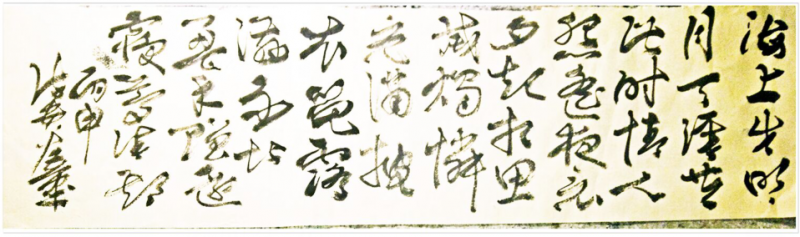 海上生明
月天涯共
此时情人
怨遥夜竟
夕起相思
滅燭憐
光满披
衣覺露
滋不堪
盈手贈還
寝夢佳期
丙申